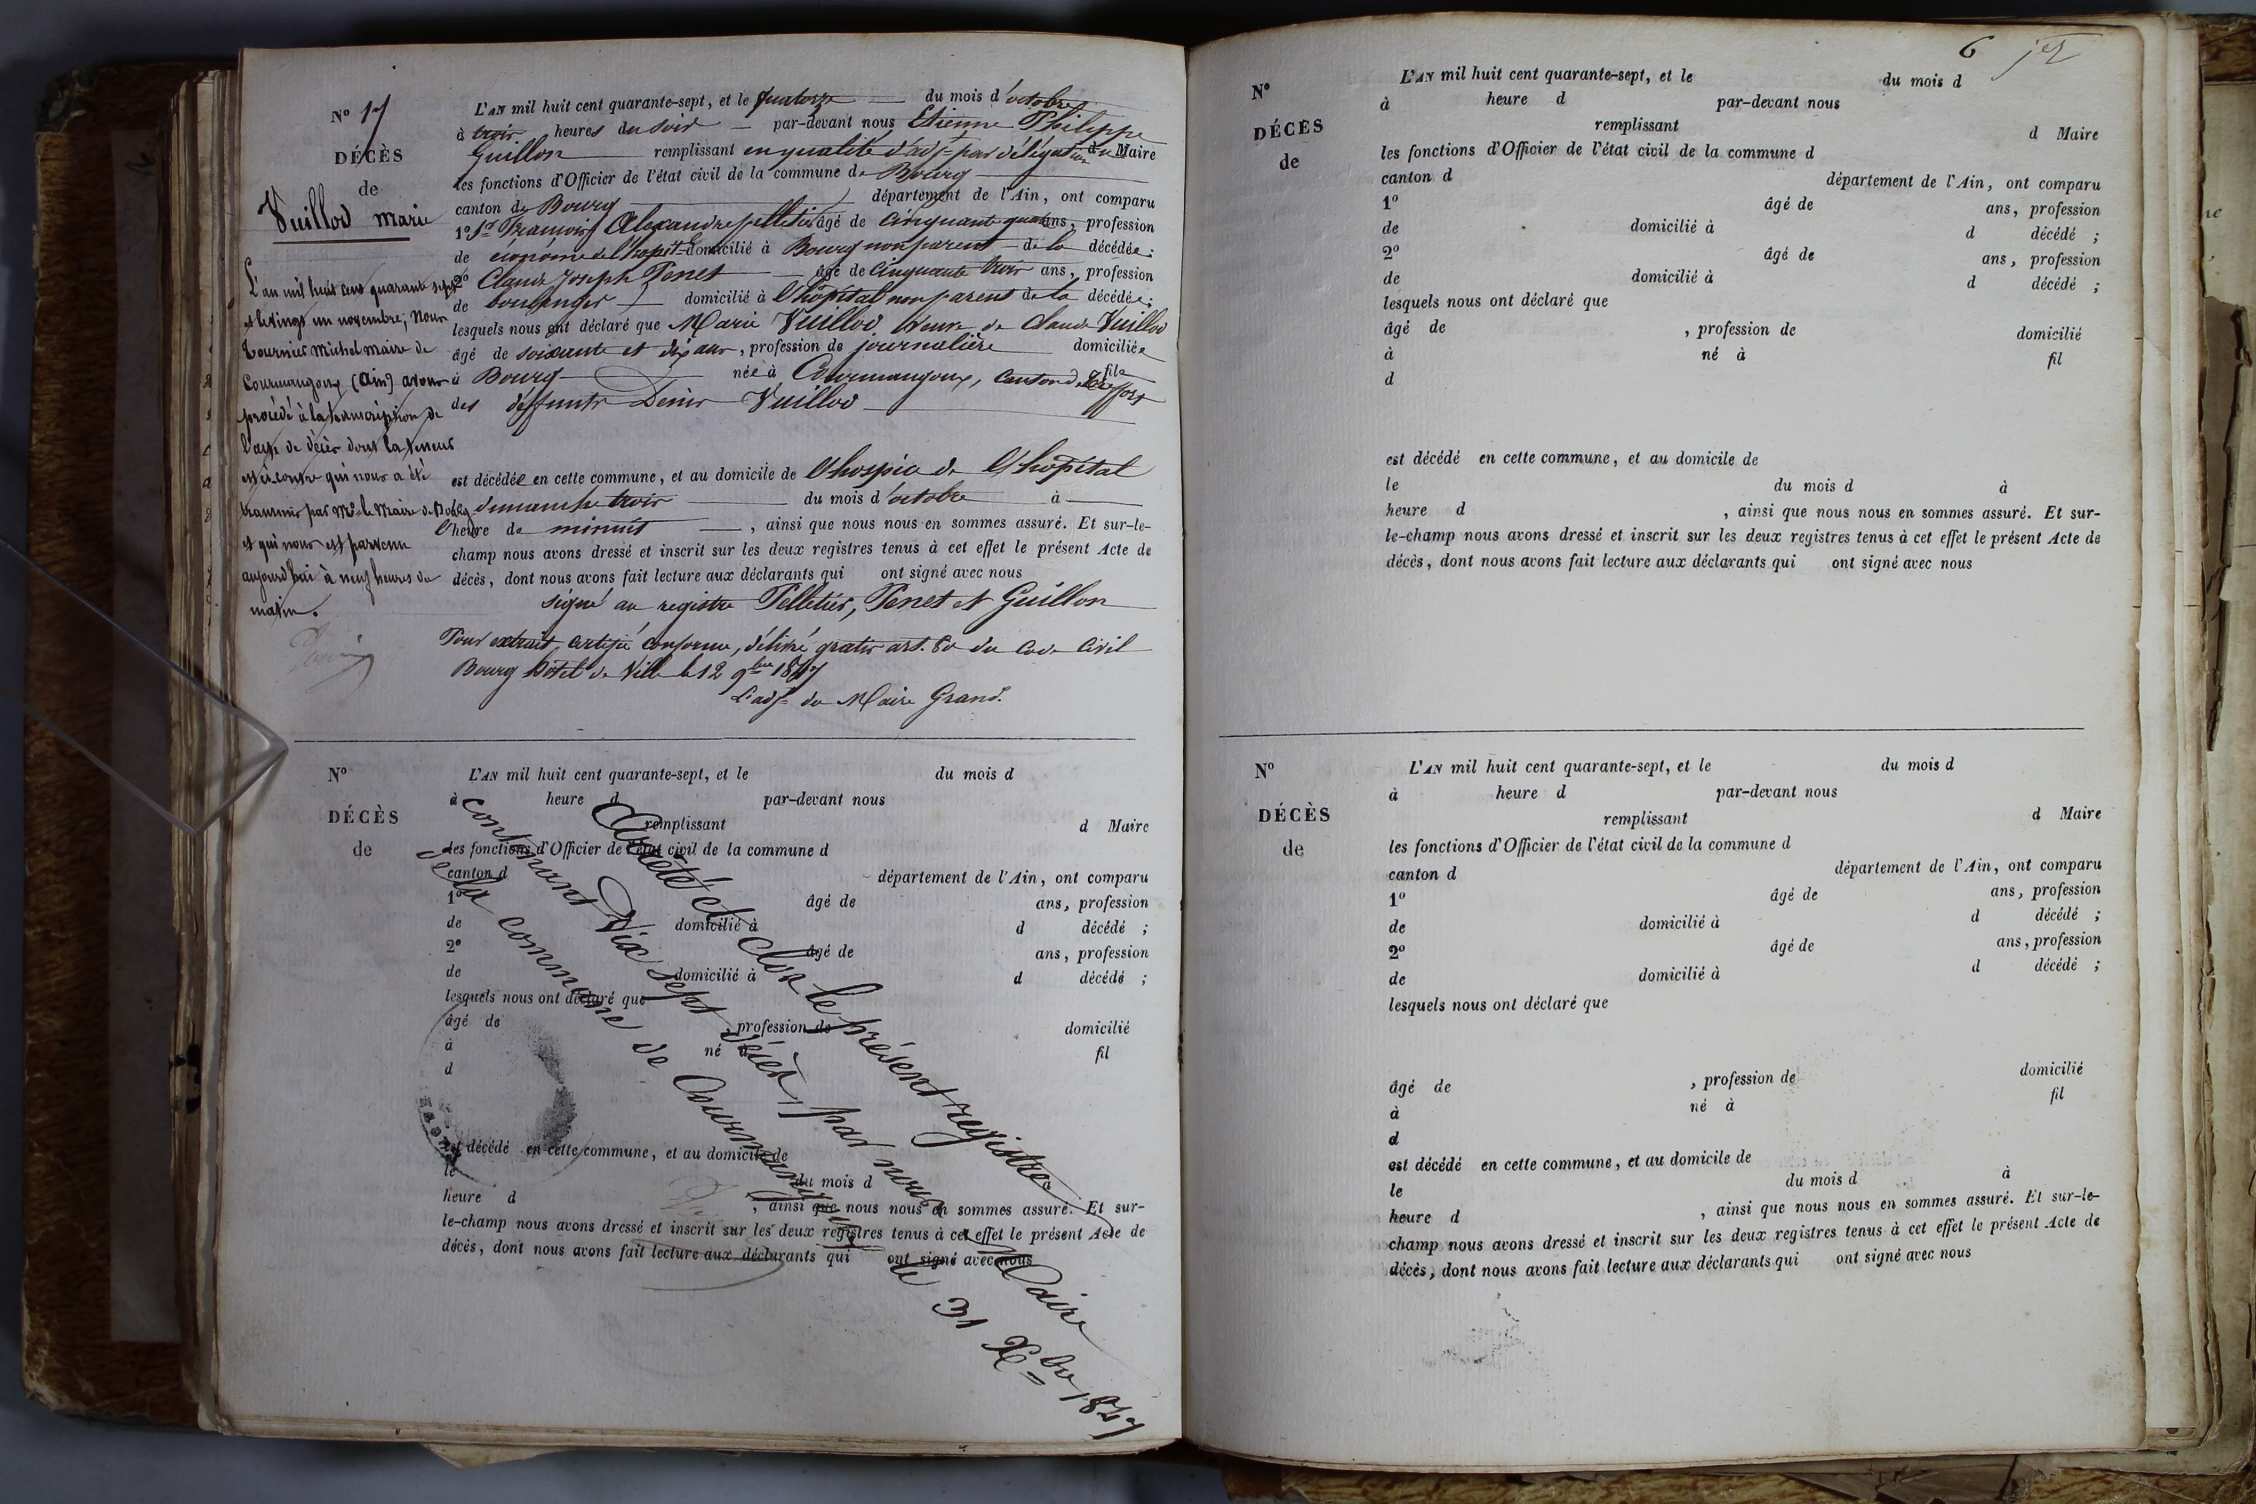 N° 17
DÉCÈS
de
Vuillod Marie
L'an mil huit cent quarante sept
et le vingt un novembre, Nous
Tournier Michel maire de
Courmangoux (Ain) avons
procédé à la transcription de
l'acte de décès dont la teneur
est ci-contre qui nous a été
transmis par Mr le Maire de Bourg
et qui nous est parvenu
aujourd'hui à neuf heures du
matin.
L'AN mil huit cent quarante-sept, et le quatorze du mois d'octobre
à trois heures du soir par-devant nous Etienne Philippe
Guillon remplissant en qualité d'adj. par délégation du Maire
les fonctions d'Officier de l'état civil de la commune de Bourg
canton de Bourg département de l'Ain, ont comparu
1° Sr François Alexandre Pelletier âgé de cinquante quatre ans, profession
de économe de l'hopit. domicilié à Bourg non parent de la décédée;
2° Claude Joseph Penet âgé de cinquante trois ans, profession
de boulanger domicilié à l'hôpital non parent de la décédée;
lesquels nous ont déclaré que Marie Vuillod veuve de Claude Vuillod
âgé de soixante et dix ans, profession de journalière domiciliée
à Bourg née à Courmangoux, canton de Treffort fille
des deffunts Denis Vuillod
est décédée en cette commune, et au domicile de l'hospice de l'hôpital
le dimanche trois du mois d'octobre à
l'heure de minuit, ainsi que nous nous en sommes assuré. Et sur-le-
champ nous avons dressé et inscrit sur les deux registres tenus à cet effet le présent Acte de
décès, dont nous avons fait lecture aux déclarants qui ont signé avec nous
signé au registre Pelletier, Penet et Guillon
Pour extrait certifié conforme, délivré gratis art. 80 du Code Civil
Bourg Hôtel de Ville le 12 9bre 1847
L'adj. du Maire Grand.
N°
DÉCÈS
de
L'AN mil huit cent quarante-sept, et le du mois d
à heure d par-devant nous
remplissant d Maire
les fonctions d'Officier de l'état civil de la commune d
canton d département de l'Ain, ont comparu
1° âgé de ans, profession
de domicilié à d décédé ;
2° âgé de ans, profession
de domicilié à d décédé ;
lesquels nous ont déclaré que
âgé de , profession de domicilié
à né à fil
d
est décédé en cette commune, et au domicile de
le du mois d
heure d , ainsi que nous nous en sommes assuré. Et sur-
le-champ nous avons dressé et inscrit sur les deux registres tenus à cet effet le présent Acte de
décès, dont nous avons fait lecture aux déclarants qui ont signé avec nous
Arrêté et clos le présent registre
contenant Dix sept Décès, par nous Maire
de la commune de Courmangoux le 31 Xbre 1847
6
N°
DÉCÈS
de
L'AN mil huit cent quarante-sept, et le du mois d
à heure d par-devant nous
remplissant d Maire
les fonctions d'Officier de l'état civil de la commune d
canton d département de l'Ain, ont comparu
1° âgé de ans, profession
de domicilié à d décédé ;
2° âgé de ans, profession
de domicilié à d décédé ;
lesquels nous ont déclaré que
âgé de , profession de domicilié
à né à fil
d
est décédé en cette commune, et au domicile de
le du mois d à
heure d , ainsi que nous nous en sommes assuré. Et sur-
le-champ nous avons dressé et inscrit sur les deux registres tenus à cet effet le présent Acte de
décès, dont nous avons fait lecture aux déclarants qui ont signé avec nous
N°
DÉCÈS
de
L'AN mil huit cent quarante-sept, et le du mois d
à heure d par-devant nous
remplissant d Maire
les fonctions d'Officier de l'état civil de la commune d
canton d département de l'Ain, ont comparu
1° âgé de ans, profession
de domicilié à d décédé ;
2° âgé de ans, profession
de domicilié à d décédé ;
lesquels nous ont déclaré que
âgé de , profession de domicilié
à né à fil
d
est décédé en cette commune, et au domicile de
le du mois d à
heure d , ainsi que nous nous en sommes assuré. Et sur-le-
champ nous avons dressé et inscrit sur les deux registres tenus à cet effet le présent Acte de
décès, dont nous avons fait lecture aux déclarants qui ont signé avec nous